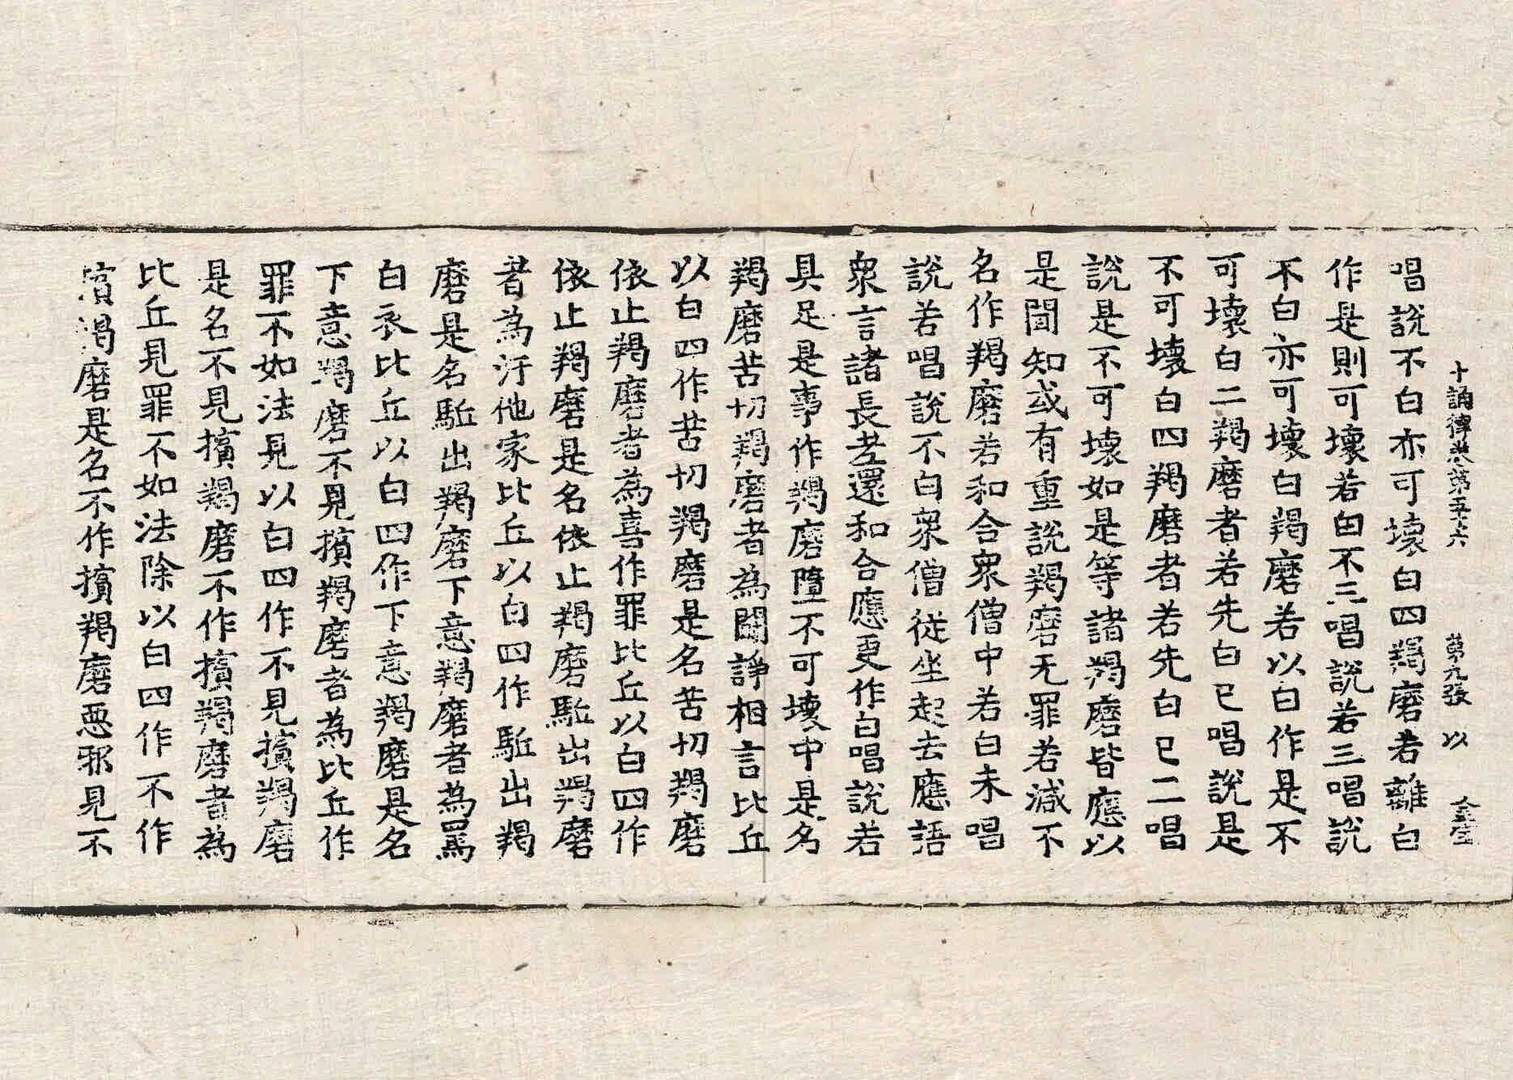 十誦律卷第五十六 第九張 以
唱說不白亦可壞白四羯磨者離白
作是則可壞若白不三唱說若三唱說
不白亦可壞白羯磨若以白作是不
可壞白二羯磨者若先白已唱說是
不可壞白四羯磨者若先白已二唱
說是不可壞如是等諸羯磨皆應以
是聞知或有重說羯磨无罪若減不
名作羯磨若和合衆僧中若白未唱
說若唱說不白衆僧從坐起去應語
衆言諸長老還和合應更作白唱說若
具足是事作羯磨墮不可壞中是名
羯磨苦切羯磨者為鬪諍相言比丘
以白四作苦切羯磨是名苦切羯磨
依止羯磨者為喜作罪比丘以白四作
依止羯磨是名依止羯磨駈出羯磨
者為汙他家比丘以白四作駈出羯
磨是名駈出羯磨下意羯磨者為罵
白衣比丘以白四作下意羯磨是名
下意羯磨不見擯羯磨者為比丘作
罪不如法見以白四作不見擯羯磨
是名不見擯羯磨不作擯羯磨者為
比丘見罪不如法除以白四作不作
擯羯磨是名不作擯羯磨惡邪見不